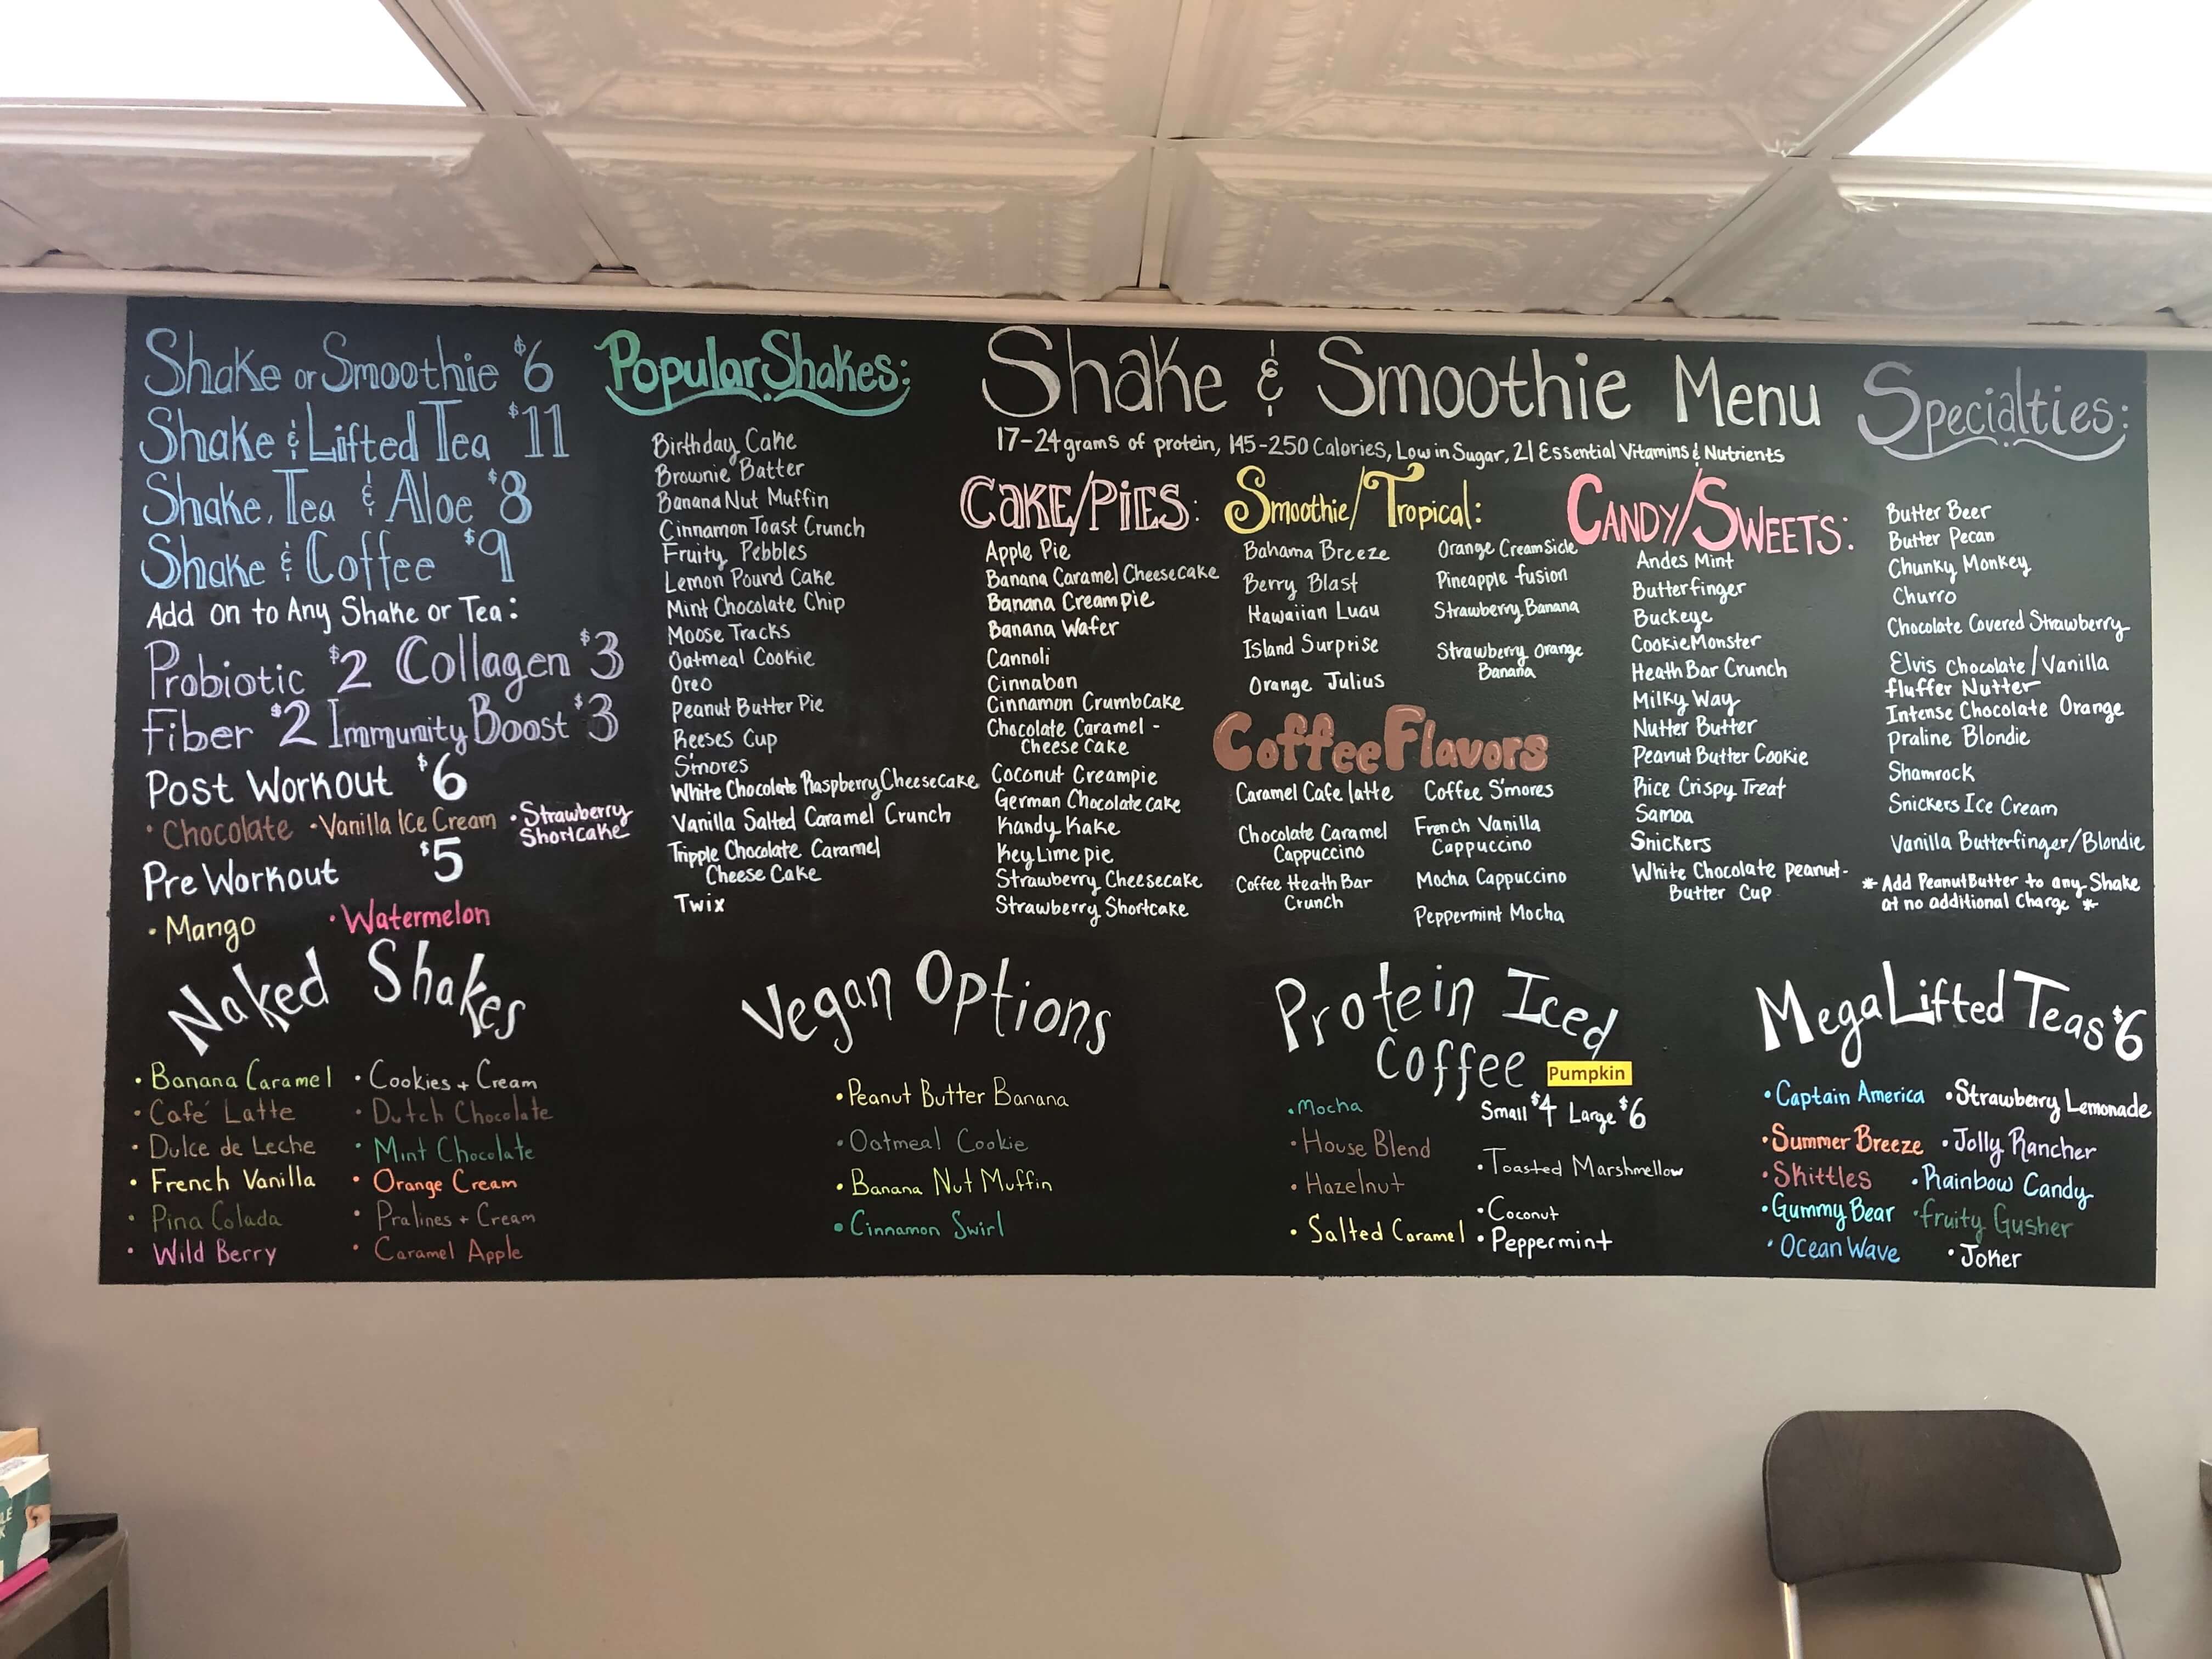 Shake or Smoothie $6
Shake & Lifted Tea $11
Shake, Tea & Aloe $8
Shake & Coffee $9
Add on to Any Shake or Tea:
Probiotic $2 Collagen $3
Fiber $2 Immunity Boost $3
Post Workout $6
• Chocolate • Vanilla Ice Cream • Strawberry
Shortcake
Pre Workout $5
• Mango • Watermelon
Popular Shakes:
Birthday Cake
Brownie Batter
Banana Nut Muffin
Cinnamon Toast Crunch
Fruity Pebbles
Lemon Pound Cake
Mint Chocolate Chip
Moose Tracks
Oatmeal Cookie
Oreo
Peanut Butter Pie
Reeses Cup
S'mores
White Chocolate Raspberry Cheesecake
Vanilla Salted Caramel Crunch
Tripple Chocolate Caramel
Cheese Cake
Twix
Shake & Smoothie Menu
17-24 grams of protein, 145-250 Calories, Low in Sugar, 21 Essential Vitamins & Nutrients
Cake/Pies:
Apple Pie
Banana Caramel Cheesecake
Banana Creampie
Banana Wafer
Cannoli
Cinnabon
Cinnamon Crumbcake
Chocolate Caramel -
Cheese Cake
Coconut Creampie
German Chocolate cake
Kandy Kake
Key Lime pie
Strawberry Cheesecake
Strawberry Shortcake
Smoothie/Tropical:
Bahama Breeze
Berry Blast
Hawaiian Luau
Island Surprise
Orange Julius
Orange CreamSicle
Pineapple fusion
Strawberry Banana
Strawberry Orange
Banana
Coffee Flavors
Caramel Cafe latte
Chocolate Caramel
Cappuccino
Coffee Heath Bar
Crunch
Coffee S'mores
French Vanilla
Cappuccino
Mocha Cappuccino
Peppermint Mocha
Candy/Sweets:
Andes Mint
Butterfinger
Buckeye
Cookie Monster
Heath Bar Crunch
Milky Way
Nutter Butter
Peanut Butter Cookie
Rice Crispy Treat
Samoa
Snickers
White Chocolate peanut-
Butter Cup
Specialties:
Butter Beer
Butter Pecan
Chunky Monkey
Churro
Chocolate Covered Strawberry
Elvis Chocolate/Vanilla
fluffer Nutter
Intense Chocolate Orange
Praline Blondie
Shamrock
Snickers Ice Cream
Vanilla Butterfinger/Blondie
* Add Peanut Butter to any Shake
at no additional Charge *
Naked Shakes
• Banana Caramel
• Café Latte
• Dulce de Leche
• French Vanilla
• Pina Colada
• Wild Berry
• Cookies + Cream
• Dutch Chocolate
• Mint Chocolate
• Orange Cream
• Pralines + Cream
• Caramel Apple
Vegan Options
• Peanut Butter Banana
• Oatmeal Cookie
• Banana Nut Muffin
• Cinnamon Swirl
Protein Iced
Coffee
Pumpkin
Small $4 Large $6
• Mocha
• House Blend
• Hazelnut
• Salted Caramel
• Toasted Marshmellow
• Coconut
• Peppermint
Mega Lifted Teas $6
• Captain America
• Summer Breeze
• Skittles
• Gummy Bear
• Ocean Wave
• Strawberry Lemonade
• Jolly Rancher
• Rainbow Candy
• fruity Gusher
• Joker